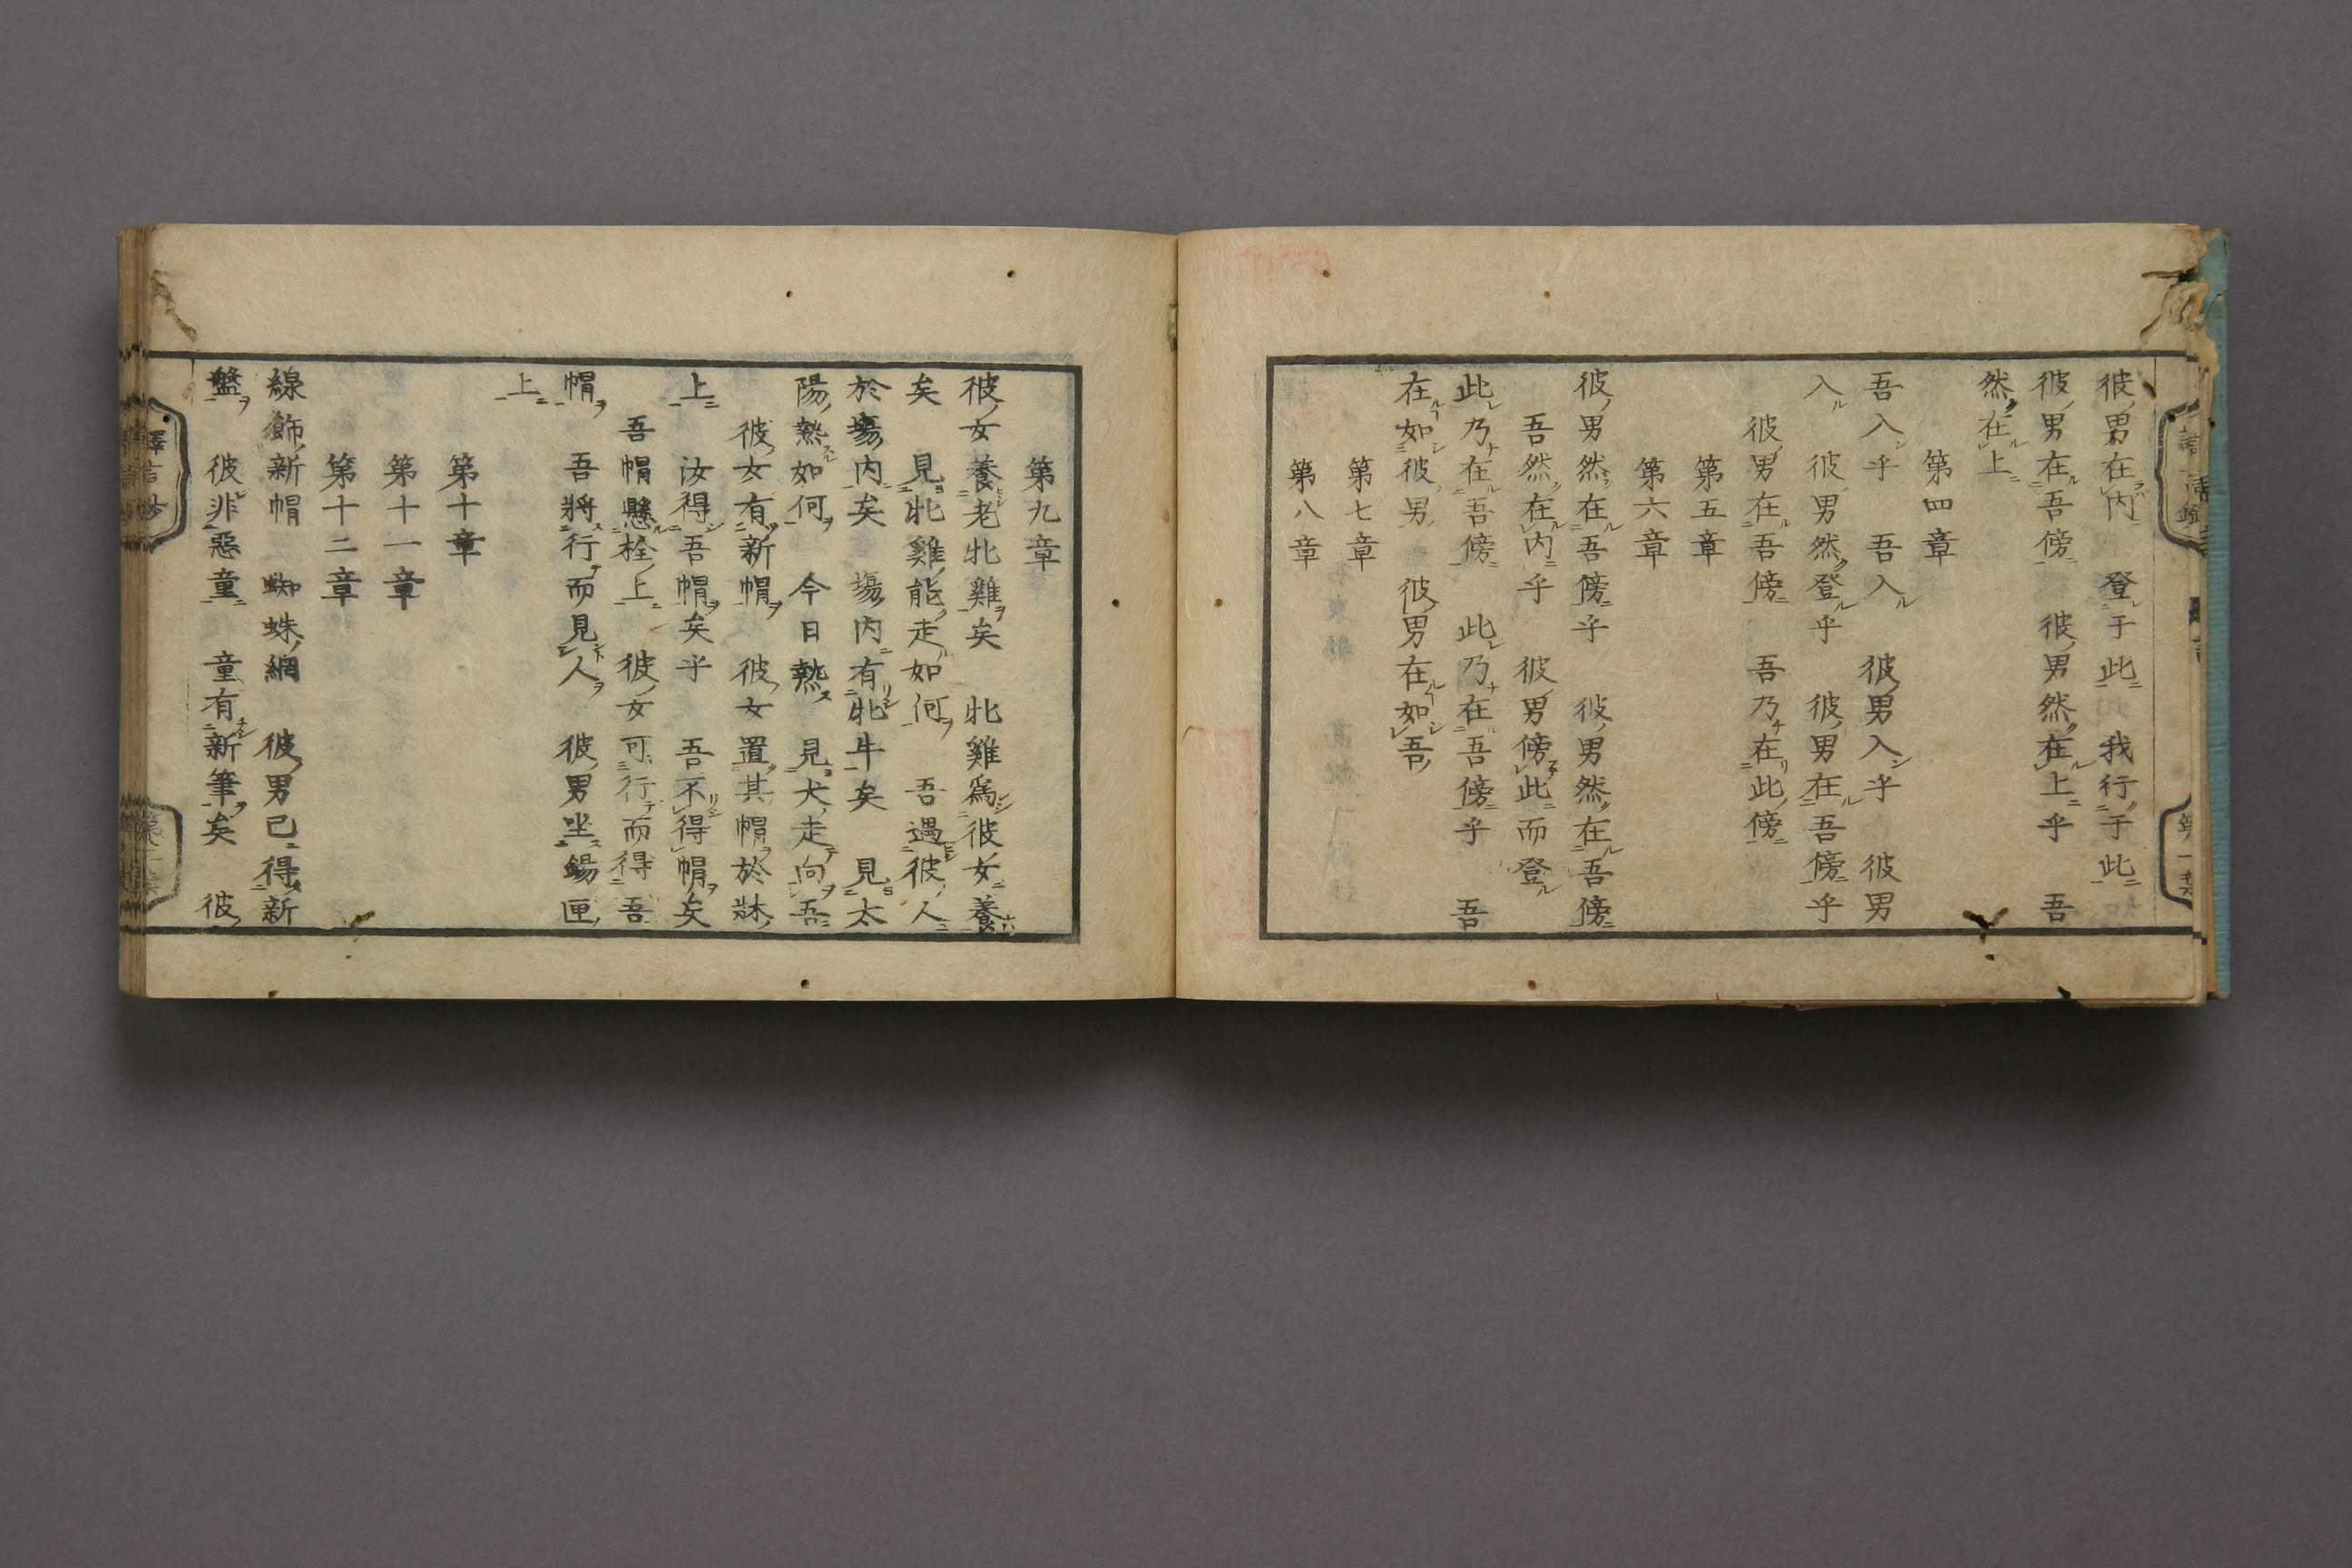 彼男在内 登于此 我行于此
彼男在吾傍 彼男然在上乎 吾
然在上
第四章
吾入乎 吾入 彼男入乎 彼男
入 彼男然登乎 彼男在吾傍乎
彼男在吾傍 吾乃在此傍
第五章
第六章
彼男然在吾傍乎 彼男然在吾傍
吾然在内乎 彼男傍此而登
此乃在吾傍 此乃在吾傍乎 吾
在如彼男 彼男在如吾
第七章
第八章
第九章
彼女養老牝雞矣 牝雞爲彼女養
矣 見牝雞能走如何 吾遇彼人
於塲内矣 塲内有牝牛矣 見太
陽熱如何 今日熱 見犬走向吾
彼女有新帽 彼女置其帽於牀
上 汝得吾帽矣乎 吾不得帽矣
吾帽懸栓上 彼女可行而得吾
帽 吾將行而見人 彼男坐鍚匣
上
第十章
第十一章
第十二章
線飾新帽 蜘蛛網 彼男已得新
盤 彼非惡童 童有新筆矣 彼